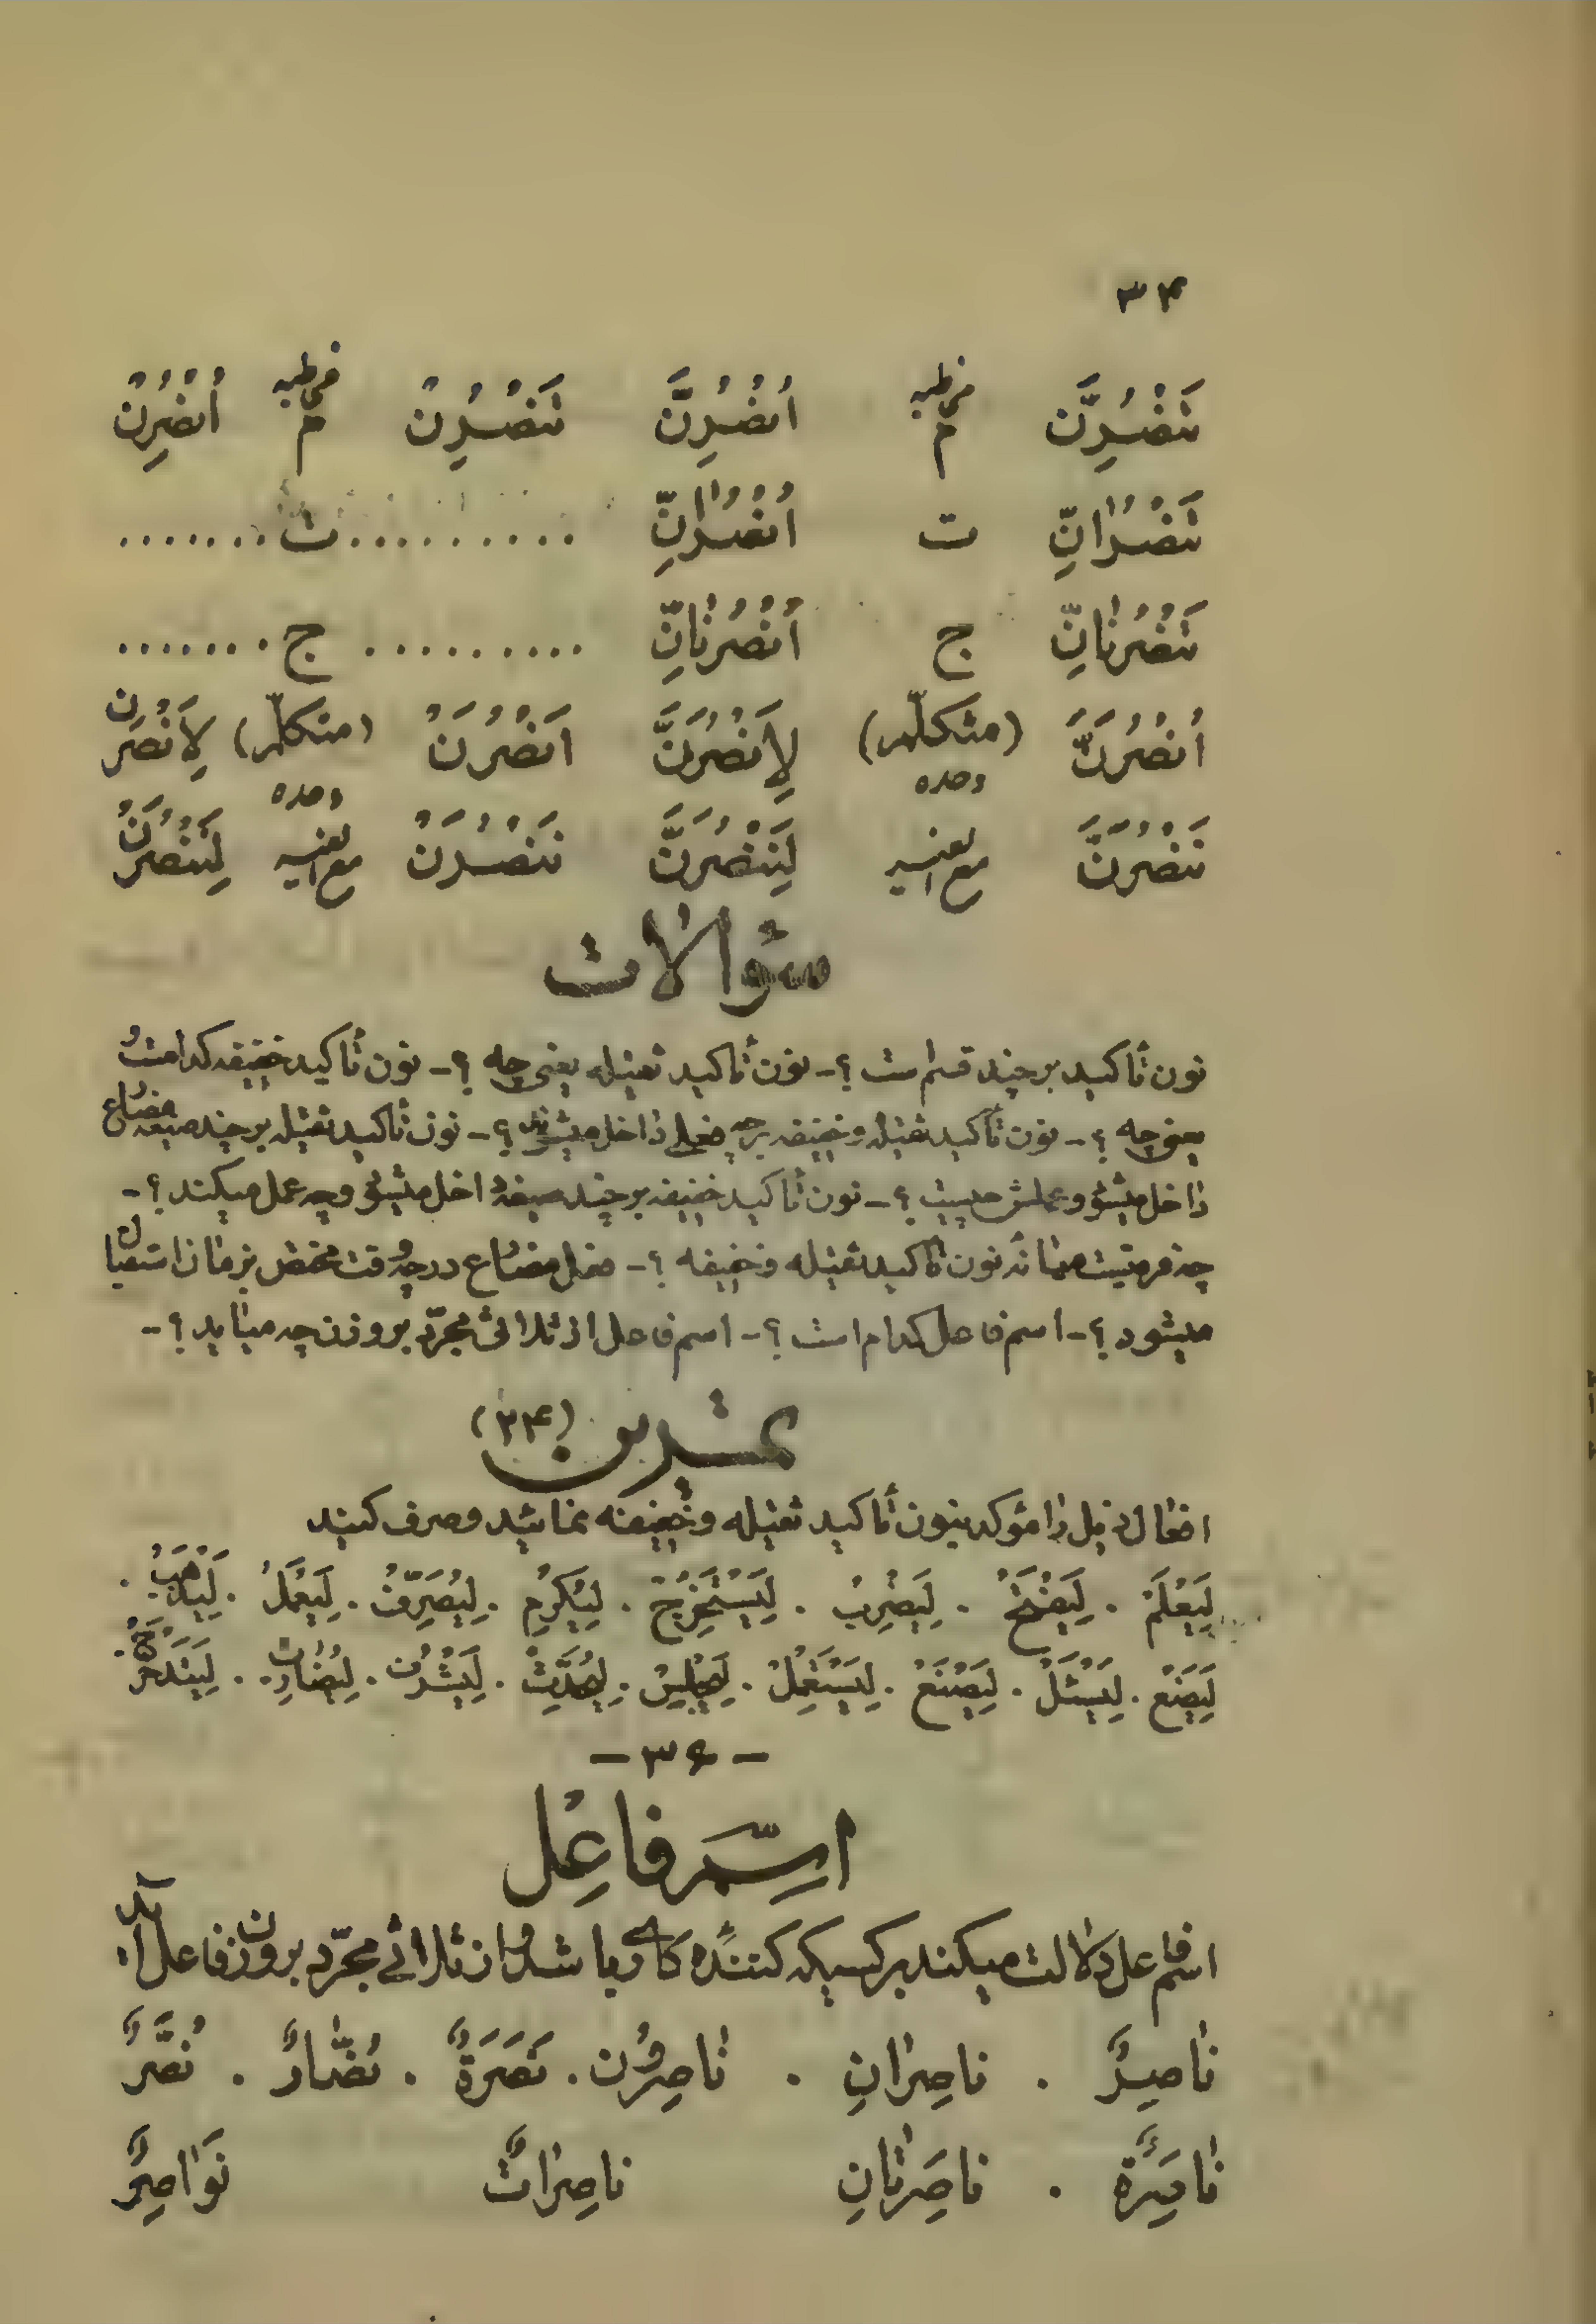 ۳۴
تَنْصُرِنَّ م مخاطبه اُنْصُرِنَّ تَنْصُرِنْ م مخاطبه اُنْصُرِنْ
تَنْصُرانِّ ت اُنْصُرانِّ .......... ت .......
تَنْصُرْنانِّ ج اُنْصُرْنانِّ .......... ج .......
اَنْصُرَنَّ (متکلّم وحده) لِاَنْصُرَنَّ اَنْصُرَنْ (متکلّم وحده) لِاَنْصُرَنْ
نَنْصُرَنَّ مع الغیر لِنَنْصُرَنَّ نَنْصُرَنْ مع الغیر لِنَنْصُرَنْ
سؤالات
نون تأکید بر چند قسم است ؟ - نون تأکید ثقیله یعنی چه ؟ - نون تأکید خفیفه کدامست و
یعنی چه ؟ - نون تأکید ثقیله و خفیفه بر چه فعلی داخل میشوند ؟ - نون تأکید ثقیله بر چند صیغه مضارع
داخل میشود و عملش چیست ؟ - نون تأکید خفیفه بر چند صیغه داخل میشود و چه عمل میکند ؟ -
چه فرقیست میانه نون تأکید ثقیله و خفیفه ؟ - فعل مضارع در چه وقت مختص بزمان استقبال
میشود ؟ - اسم فاعل کدام است ؟ - اسم فاعل از ثلاثی مجرّد بر وزن چه میآید ؟ -
تمرین (۳۴)
افعال ذیل را مؤکد بنون تأکید ثقیله و خفیفه نمائید و صرف کنید
لِیَعْلَمْ . لِیَفْتَحْ . لِیَضْرِبْ . لِیَسْتَخْرِجْ . لِیُکْرِمْ . لِیُصَرِّفْ . لِیَعْمَلْ . لِیَذْهَبْ .
لِیَمْنَعْ . لِیَسْئَلْ . لِیَصْنَعْ . لِیَسْتَعْمِلْ . لِیَجْلِسْ . لِیُحَدِّثْ . لِیَشْرُفْ . لِیُضارِبْ . لِیَتَدَحْرَجْ .
- ۳۶ -
اسم فاعِل
اسم فاعل دلالت میکند بر کسیکه کننده کاری باشد و از ثلاثی مجرّد بر وزن فاعل آید .
ناصِرٌ . ناصِرانِ . ناصِرُون . نَصَرَةٌ . نُصّارٌ . نُصَّرٌ
ناصِرَةٌ . ناصِرَتانِ ناصِراتٌ نَواصِرُ